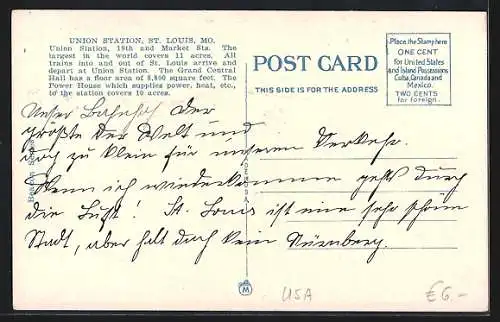 UNION STATION, ST. LOUIS, MO.
Union Station, 18th and Market Sts. The
largest in the world covers 11 acres. All
trains into and out of St. Louis arrive and
depart at Union Station. The Grand Central
Hall has a floor area of 8,800 square feet. The
Power House which supplies power, heat, etc.,
to the station covers 10 acres.
POST CARD
THIS SIDE IS FOR THE ADDRESS
Place the Stamp here
ONE CENT
for United States
and Island Possessions
Cuba, Canada and
Mexico.
TWO CENTS
for foreign.
Unser Bahnhof der
größte der Welt und
doch zu klein für unseren Verkehr.
Wenn ich wiederkomme geht's durch
die Luft! St. Louis ist eine sehr schöne
Stadt, aber halt doch kein Nürnberg.
M
USA
€6.-